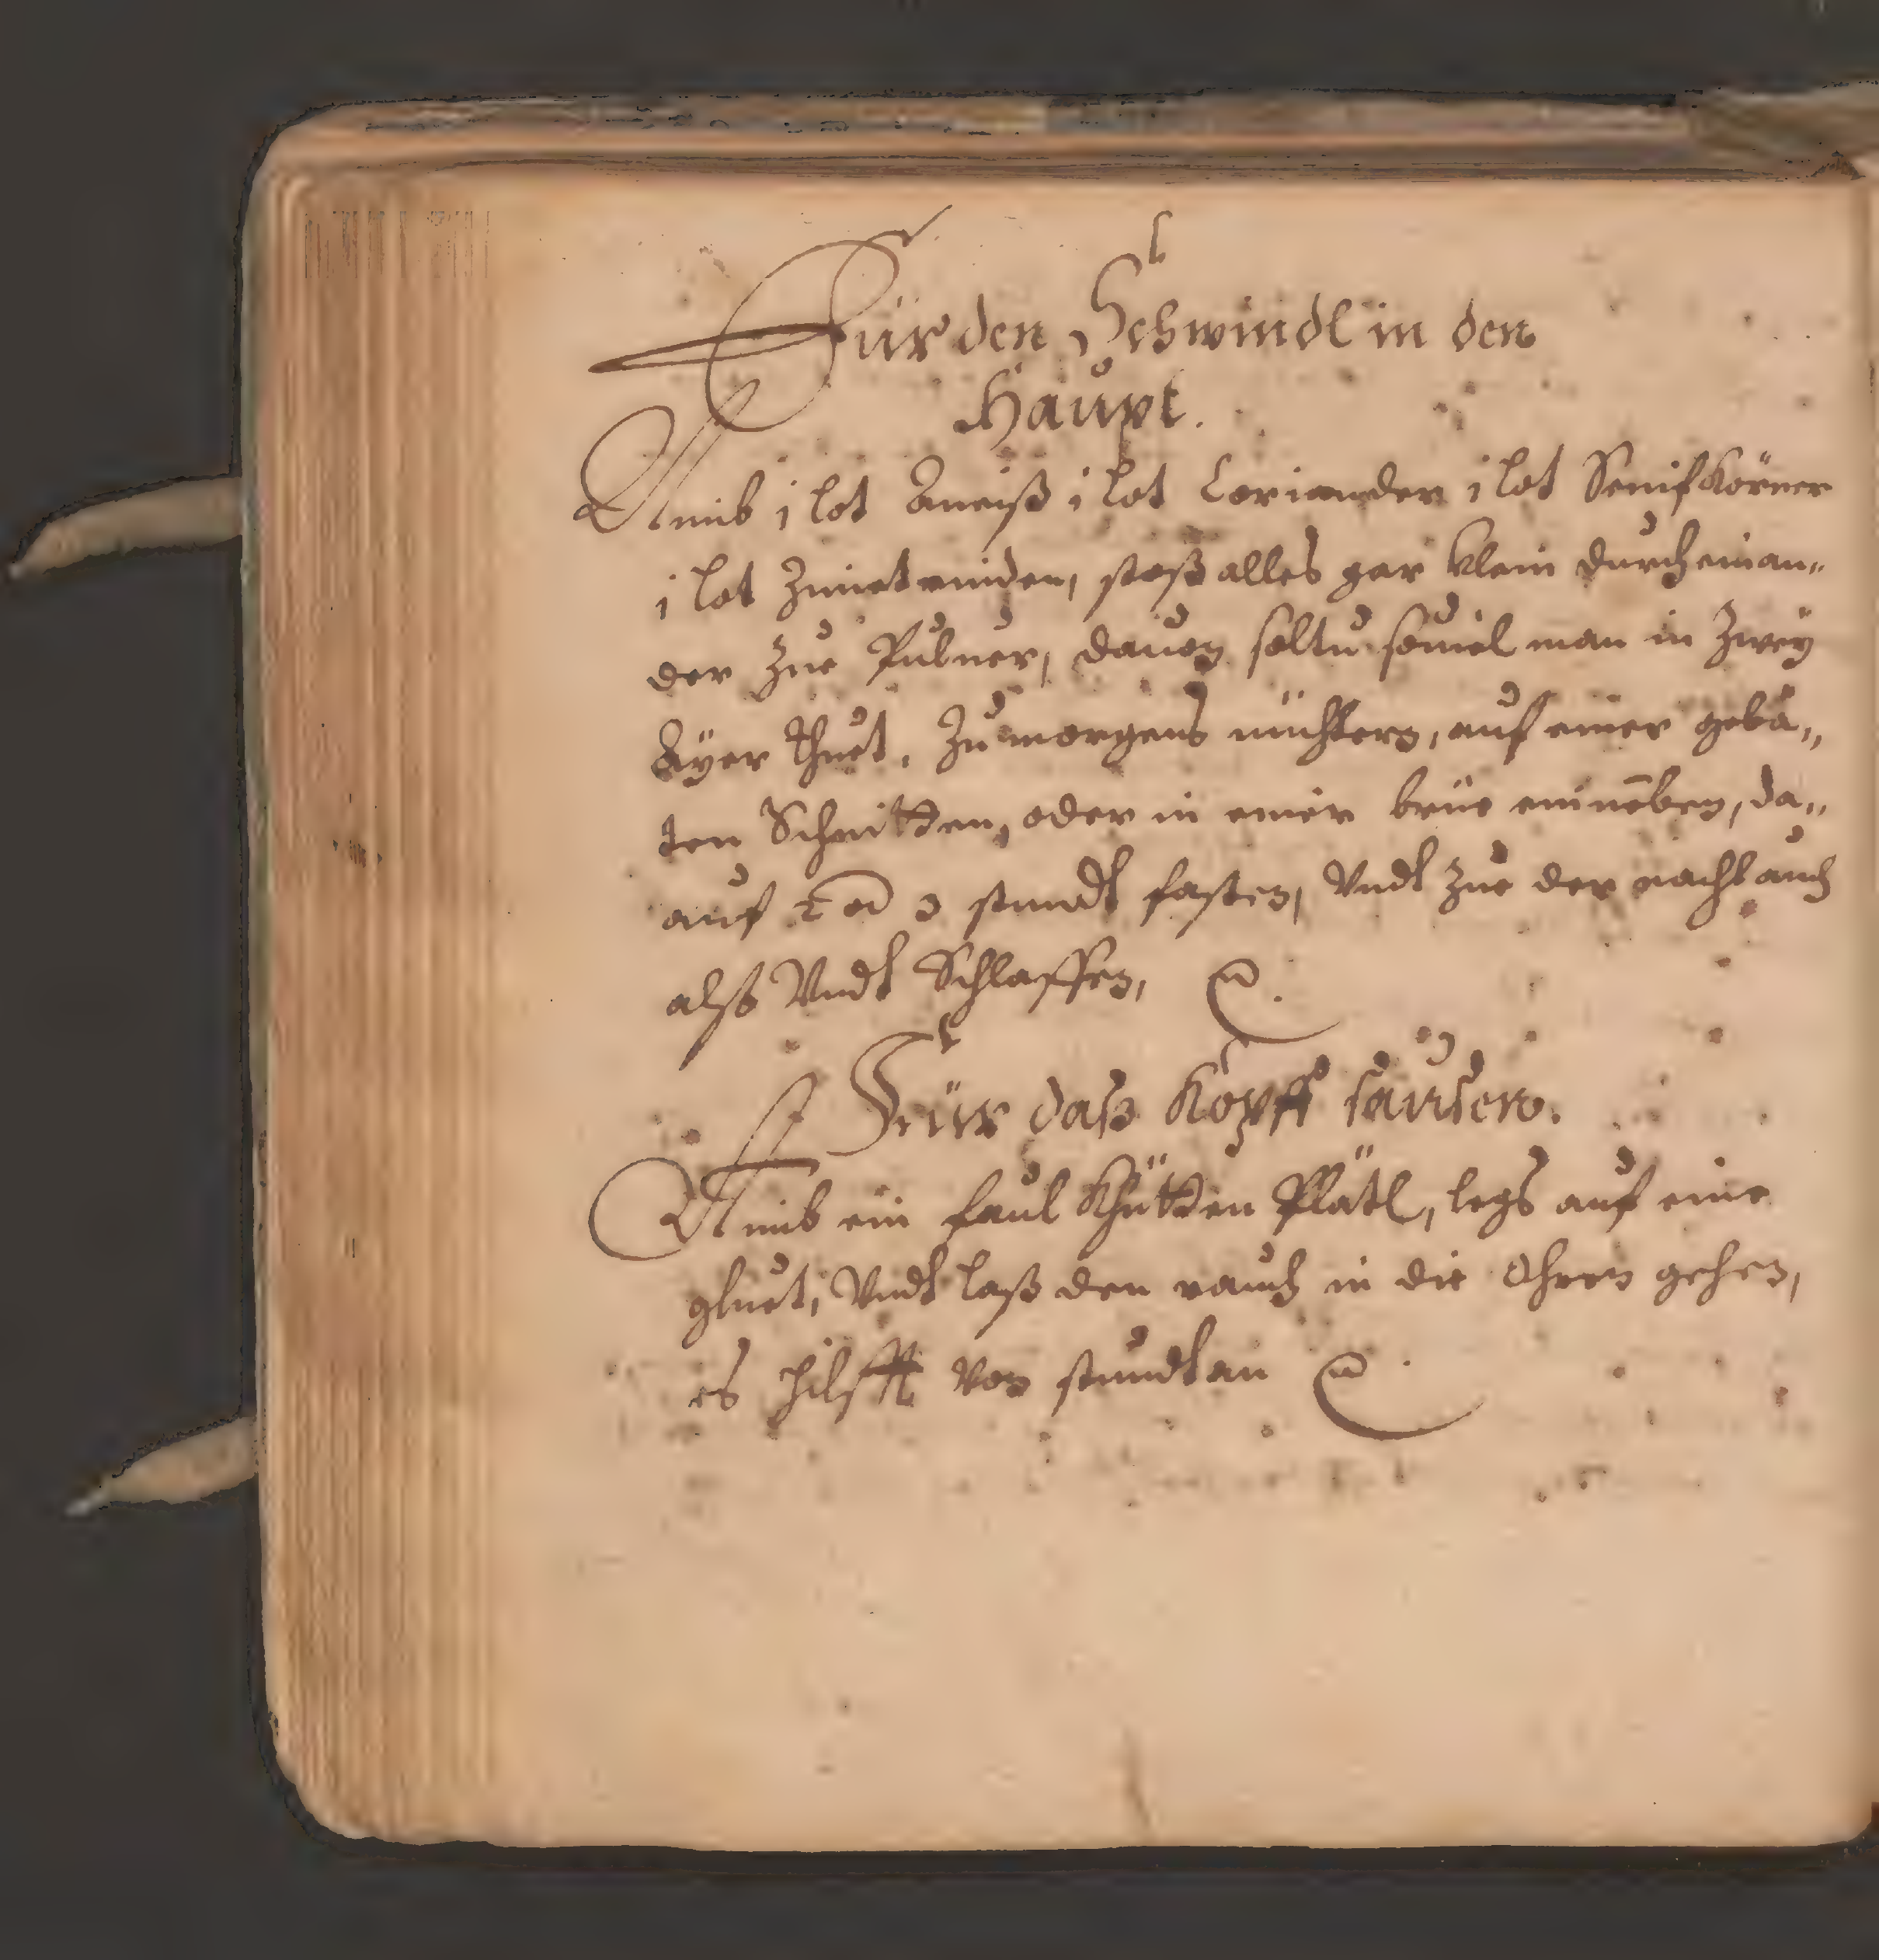 Für den Schwindl in den
Haupt.
Nimb j lot Aneiß j lot Coriander j lot Senifkörner
j lot Zimetrinden, stoß alles gar klein durcheinan„
der zue Puluer, dauon soltu souiel man in Zwey
Ayer thuet, Zumorgens nüchtern, auf einer gebä„
ten Schnitten, oder in einer brüe einnēben, da„
auf 2 od 3 stundt fasten, Vndt zue der nacht auch
alß Vndt Schlaffen,
Für daß Kopff sausen.
Nimb ein faul Khütten Plätl, legs auf eine
gluet, Vndt laß den rauch in die Ohren gehen,
es hilfft von stundt an